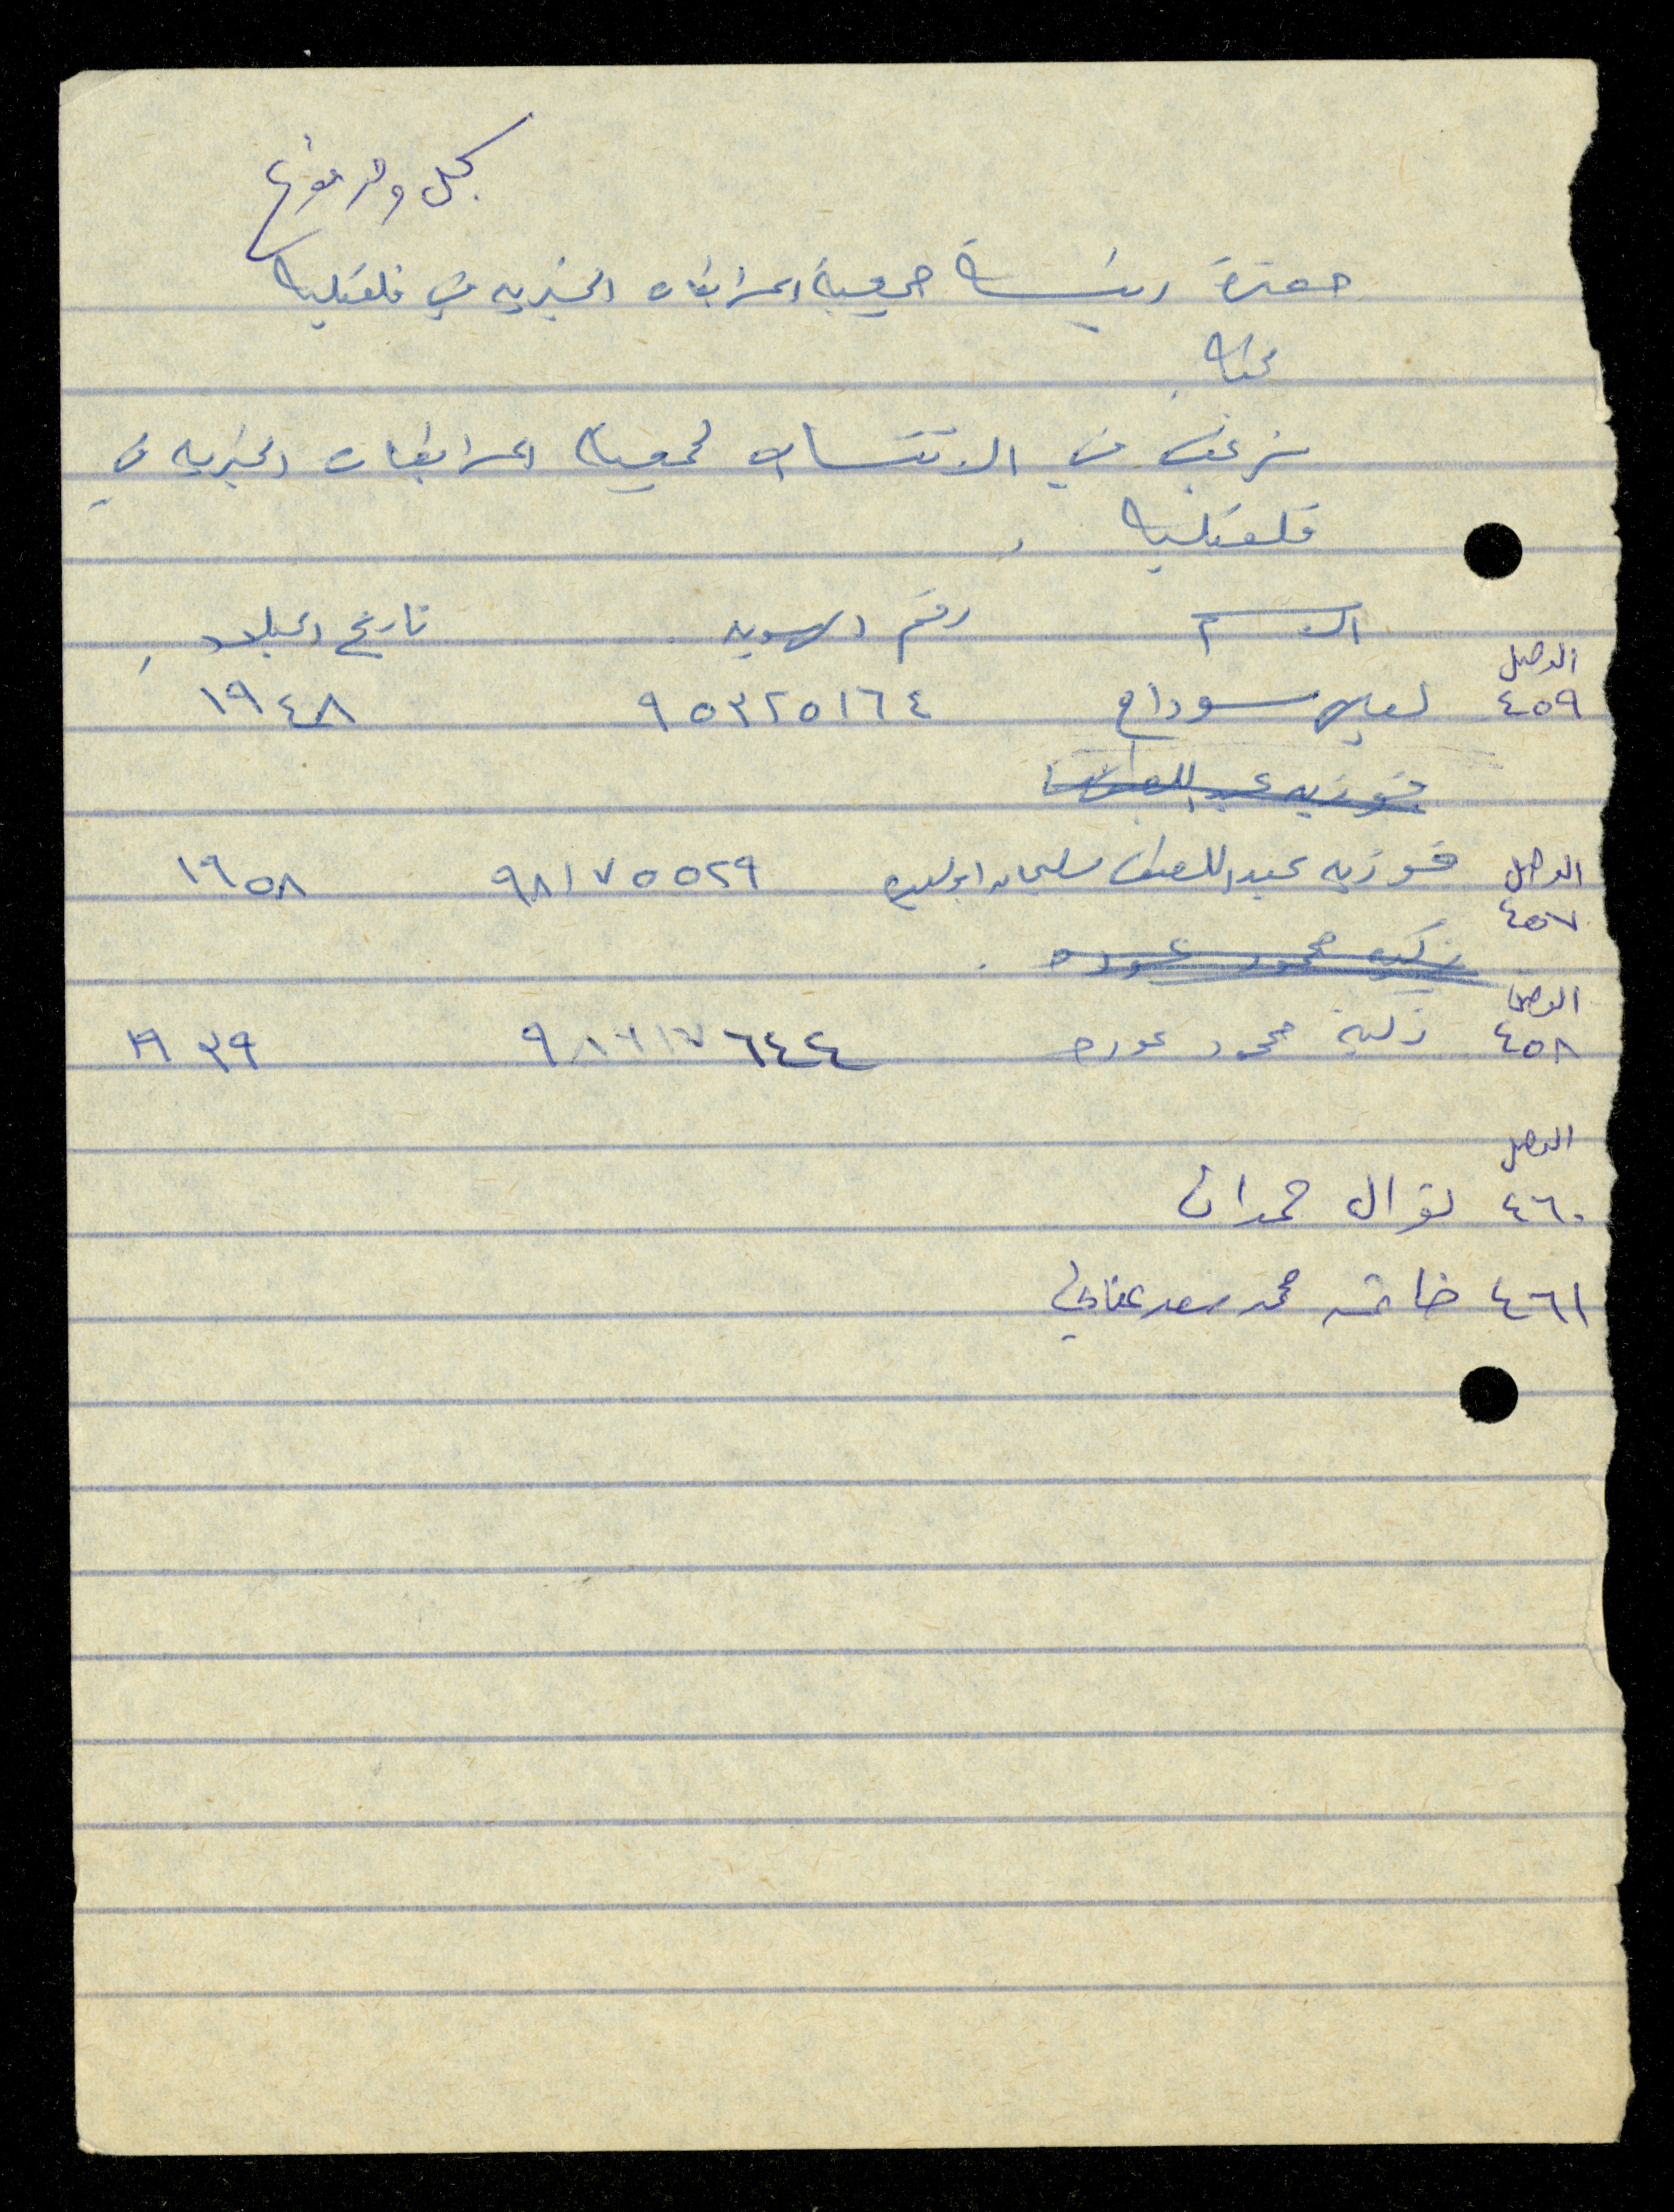 حضرة رئيسة جمعية المرابطات الخيريه في قلقيليه
تحيه
نرغب في الانتساب لجمعية المرابطات الخيريه في
قلقيليه
الاسم رقم الهويه تاريخ الميلاد
الوصل
٤٥٩ سوداح ٩٥٣٢٥١٦٤ ١٩٤٨
فوزيه عبد اللطيف
الوصل فوزيه عبد اللطيف سليمان ٩٨١٧٥٥٢٩ ١٩٥٨
٤٥٧
زكيه محمود عوده
الوصل
٤٥٨ زكية محمود عوده ١٩٣٩
الوصل
٤٦٠ نوال حمدان
٤٦١ محمد سعد عناني